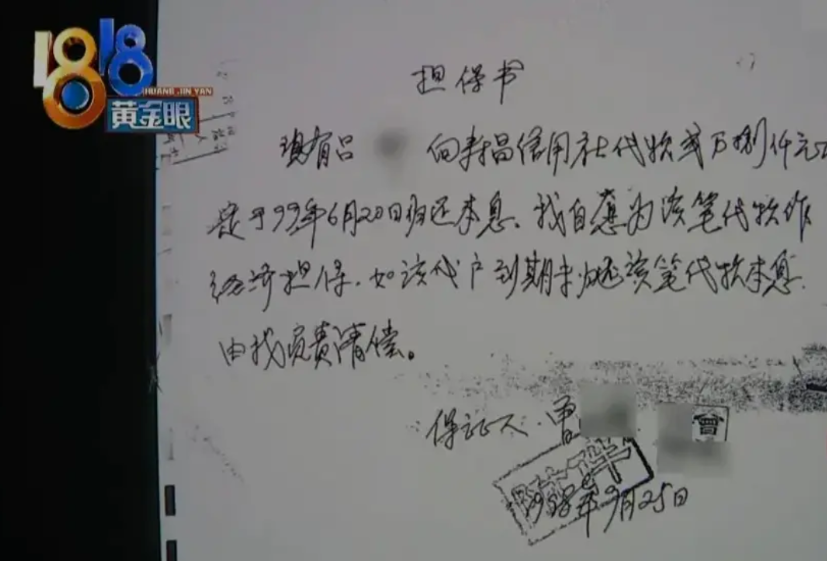 1818
HUANG JIN YAN
黄金眼
担保书
现有吕 向寿昌信用社代款贰万捌仟元正
定于99年6月20日归还本息、我自愿为该笔代款作
经济担保.如该代户到期未归还该笔代款本息.
由我负责清偿。
保证人.曾
曾
1998年9月25日